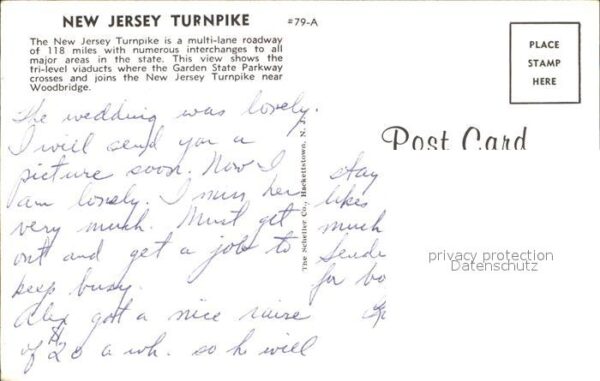 NEW JERSEY TURNPIKE
#79-A
The New Jersey Turnpike is a multi-lane roadway
of 118 miles with numerous interchanges to all
major areas in the state. This view shows the
tri-level viaducts where the Garden State Parkway
crosses and joins the New Jersey Turnpike near
Woodbridge.
PLACE
STAMP
HERE
Post Card
The wedding was lovely.
I will send you a
picture soon. Now I
am lonely. I miss her
very much. Must get
out and get a job to
keep busy.
Alex got a nice raise
of $20 a wk. so he will
stay
likes
much
Sende
for bo
The Scheller Co., Hackettstown, N. J.
privacy protection
Datenschutz